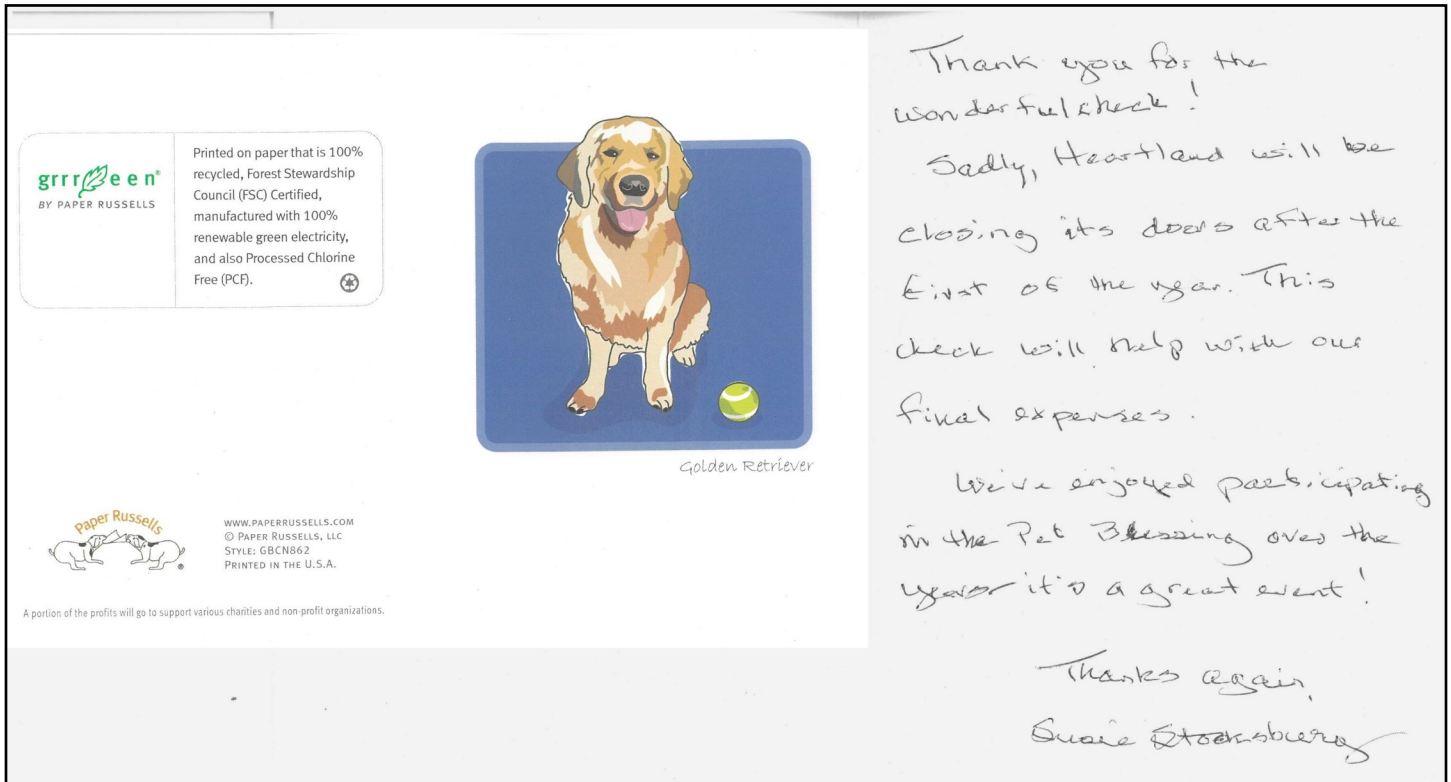 grrreen®
BY PAPER RUSSELLS
Printed on paper that is 100%
recycled, Forest Stewardship
Council (FSC) Certified,
manufactured with 100%
renewable green electricity,
and also Processed Chlorine
Free (PCF).
Golden Retriever
Paper Russells
®
WWW.PAPERRUSSELLS.COM
© PAPER RUSSELLS, LLC
STYLE: GBCN862
PRINTED IN THE U.S.A.
A portion of the profits will go to support various charities and non-profit organizations.
Thank you for the
wonderful check!
Sadly, Heartland will be
closing its doors after the
first of the year. This
check will help with our
final expenses.
We've enjoyed participating
in the Pet Blessing over the
years it's a great event!
Thanks again,
Susie Stocksburg